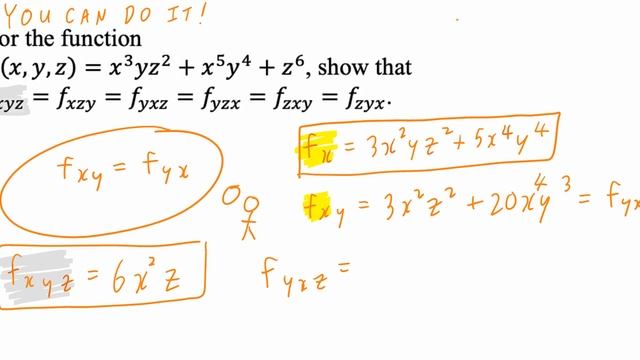 YOU CAN DO IT!
or the function
(x, y, z) = x³yz² + x⁵y⁴ + z⁶, show that
xyz = f_xzy = f_yxz = f_yzx = f_zxy = f_zyx.
f_x = 3x²yz² + 5x⁴y⁴
f_xy = f_yx
f_xy = 3x²z² + 20x⁴y³ = f_yx
f_xyz = 6x²z
f_yxz =